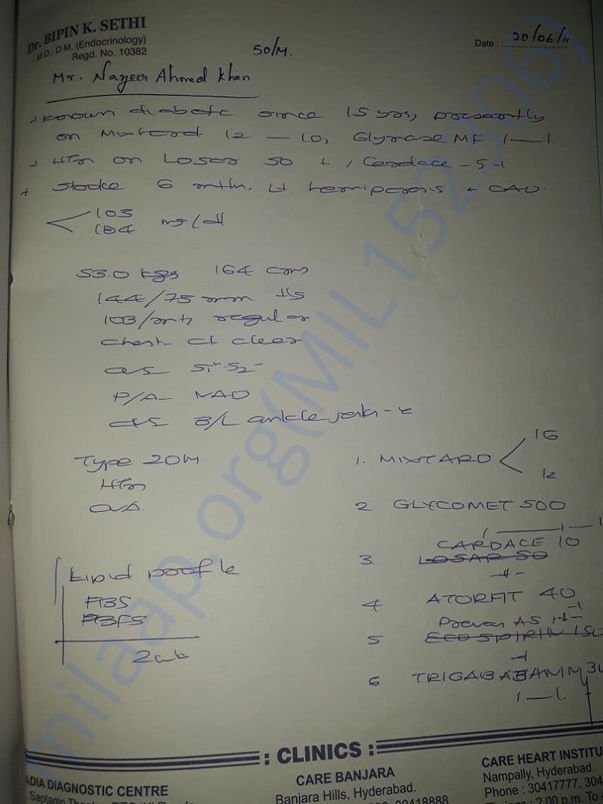 Dr. BIPIN K. SETHI
M.D., D.M. (Endocrinology)
Regd. No. 10382
50/M.
Date : 20/06/11
Mr. Nazeer Ahmed Khan
Known diabetic since 15 yrs, presently
on Mixtard 12 — 10, Glycase MF 1—1.
HTn on Losar 50 +, Cardace -5-1
Stroke 6 mths. Lt hemiparesis + CAD.
103
184 mg/dl
53.0 kgs 164 cms
144/75 mm Hg
103/mts regular
Chest - clear
S1 S2
P/A- NAD
B/L ankle jerks -
Type 2DM
HTn
CVA
Lipid profile
FBS
2wk
1. MIXTARD
16
12
2 GLYCOMET 500
1——1—1
CARDACE 10
3. LOSAR 50
4 ATORFIT 40
Preva AS
5 ECOSPIRIN 150
6 TRIGABAMM 3
1—1.
: CLINICS :
ADIA DIAGNOSTIC CENTRE
CARE BANJARA
Banjara Hills, Hyderabad.
30418888
CARE HEART INSTITU
Nampally, Hyderabad.
Phone : 30417777, 304
milaap.org(MIL152306)